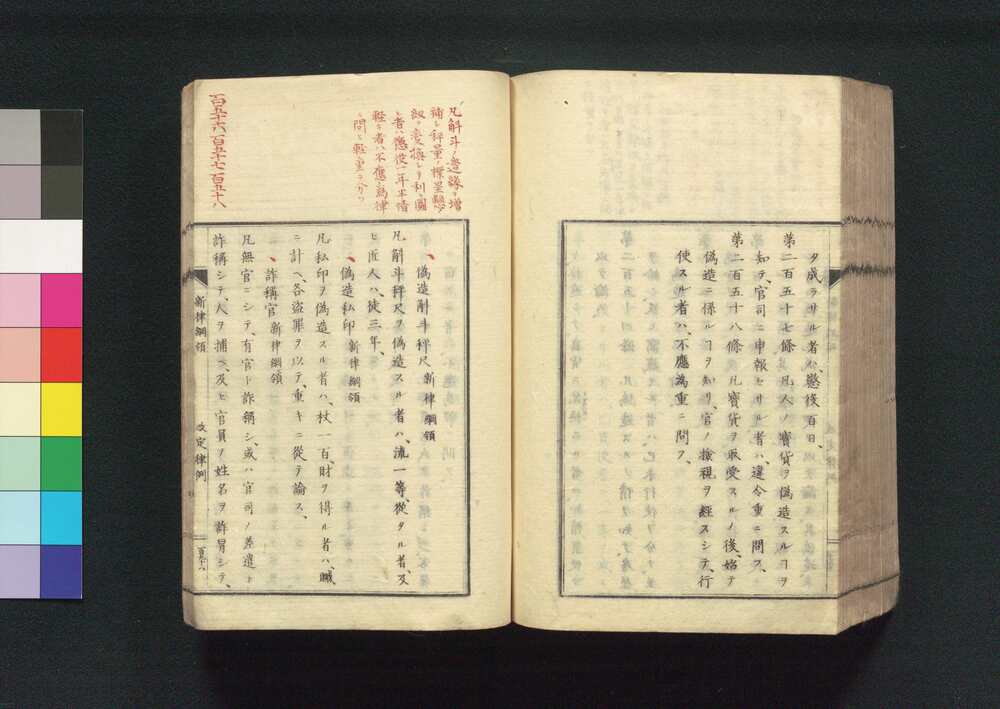 タ成ラサル者ハ、懲役百日、
第二百五十七條　凡人ノ寶貨ヲ偽造スルヿヲ
知テ、官司ニ申報セサル者ハ、違令重ニ問ス、
第二百五十八條　凡寶貨ヲ収受スルノ後、始テ
偽造ニ係ルヿヲ知リ、官ノ撿視ヲ經スシテ、行
使スル者ハ、不應為重ニ問フ、
凡斛斗ノ邉縁ヲ増
補シ秤量ノ標星
ヲ變換シ利ヲ圖
ル者ハ懲役一年半情
軽キ者ハ不應為律
ニ問ヒ軽重ヲ分
百五十六百五十七百五十八
偽造斛斗秤尺　新律綱領
凡斛斗秤尺ヲ偽造スル者ハ、流一等、從タル者、及
ヒ匠人ハ、徒三年、
偽造私印　新律綱領
凡私印ヲ偽造スル者ハ、杖一百、財ヲ得ル者ハ、贓
ニ計ヘ、各盗罪ヲ以テ、重キニ從テ論ス、
詐稱官　新律綱領
凡無官ニシテ、有官ト詐稱シ、或ハ官司ノ差遣ト
詐稱シテ、人ヲ捕ヘ、及ヒ官員ノ姓名ヲ詐冒シテ、
新律綱領
改定律例